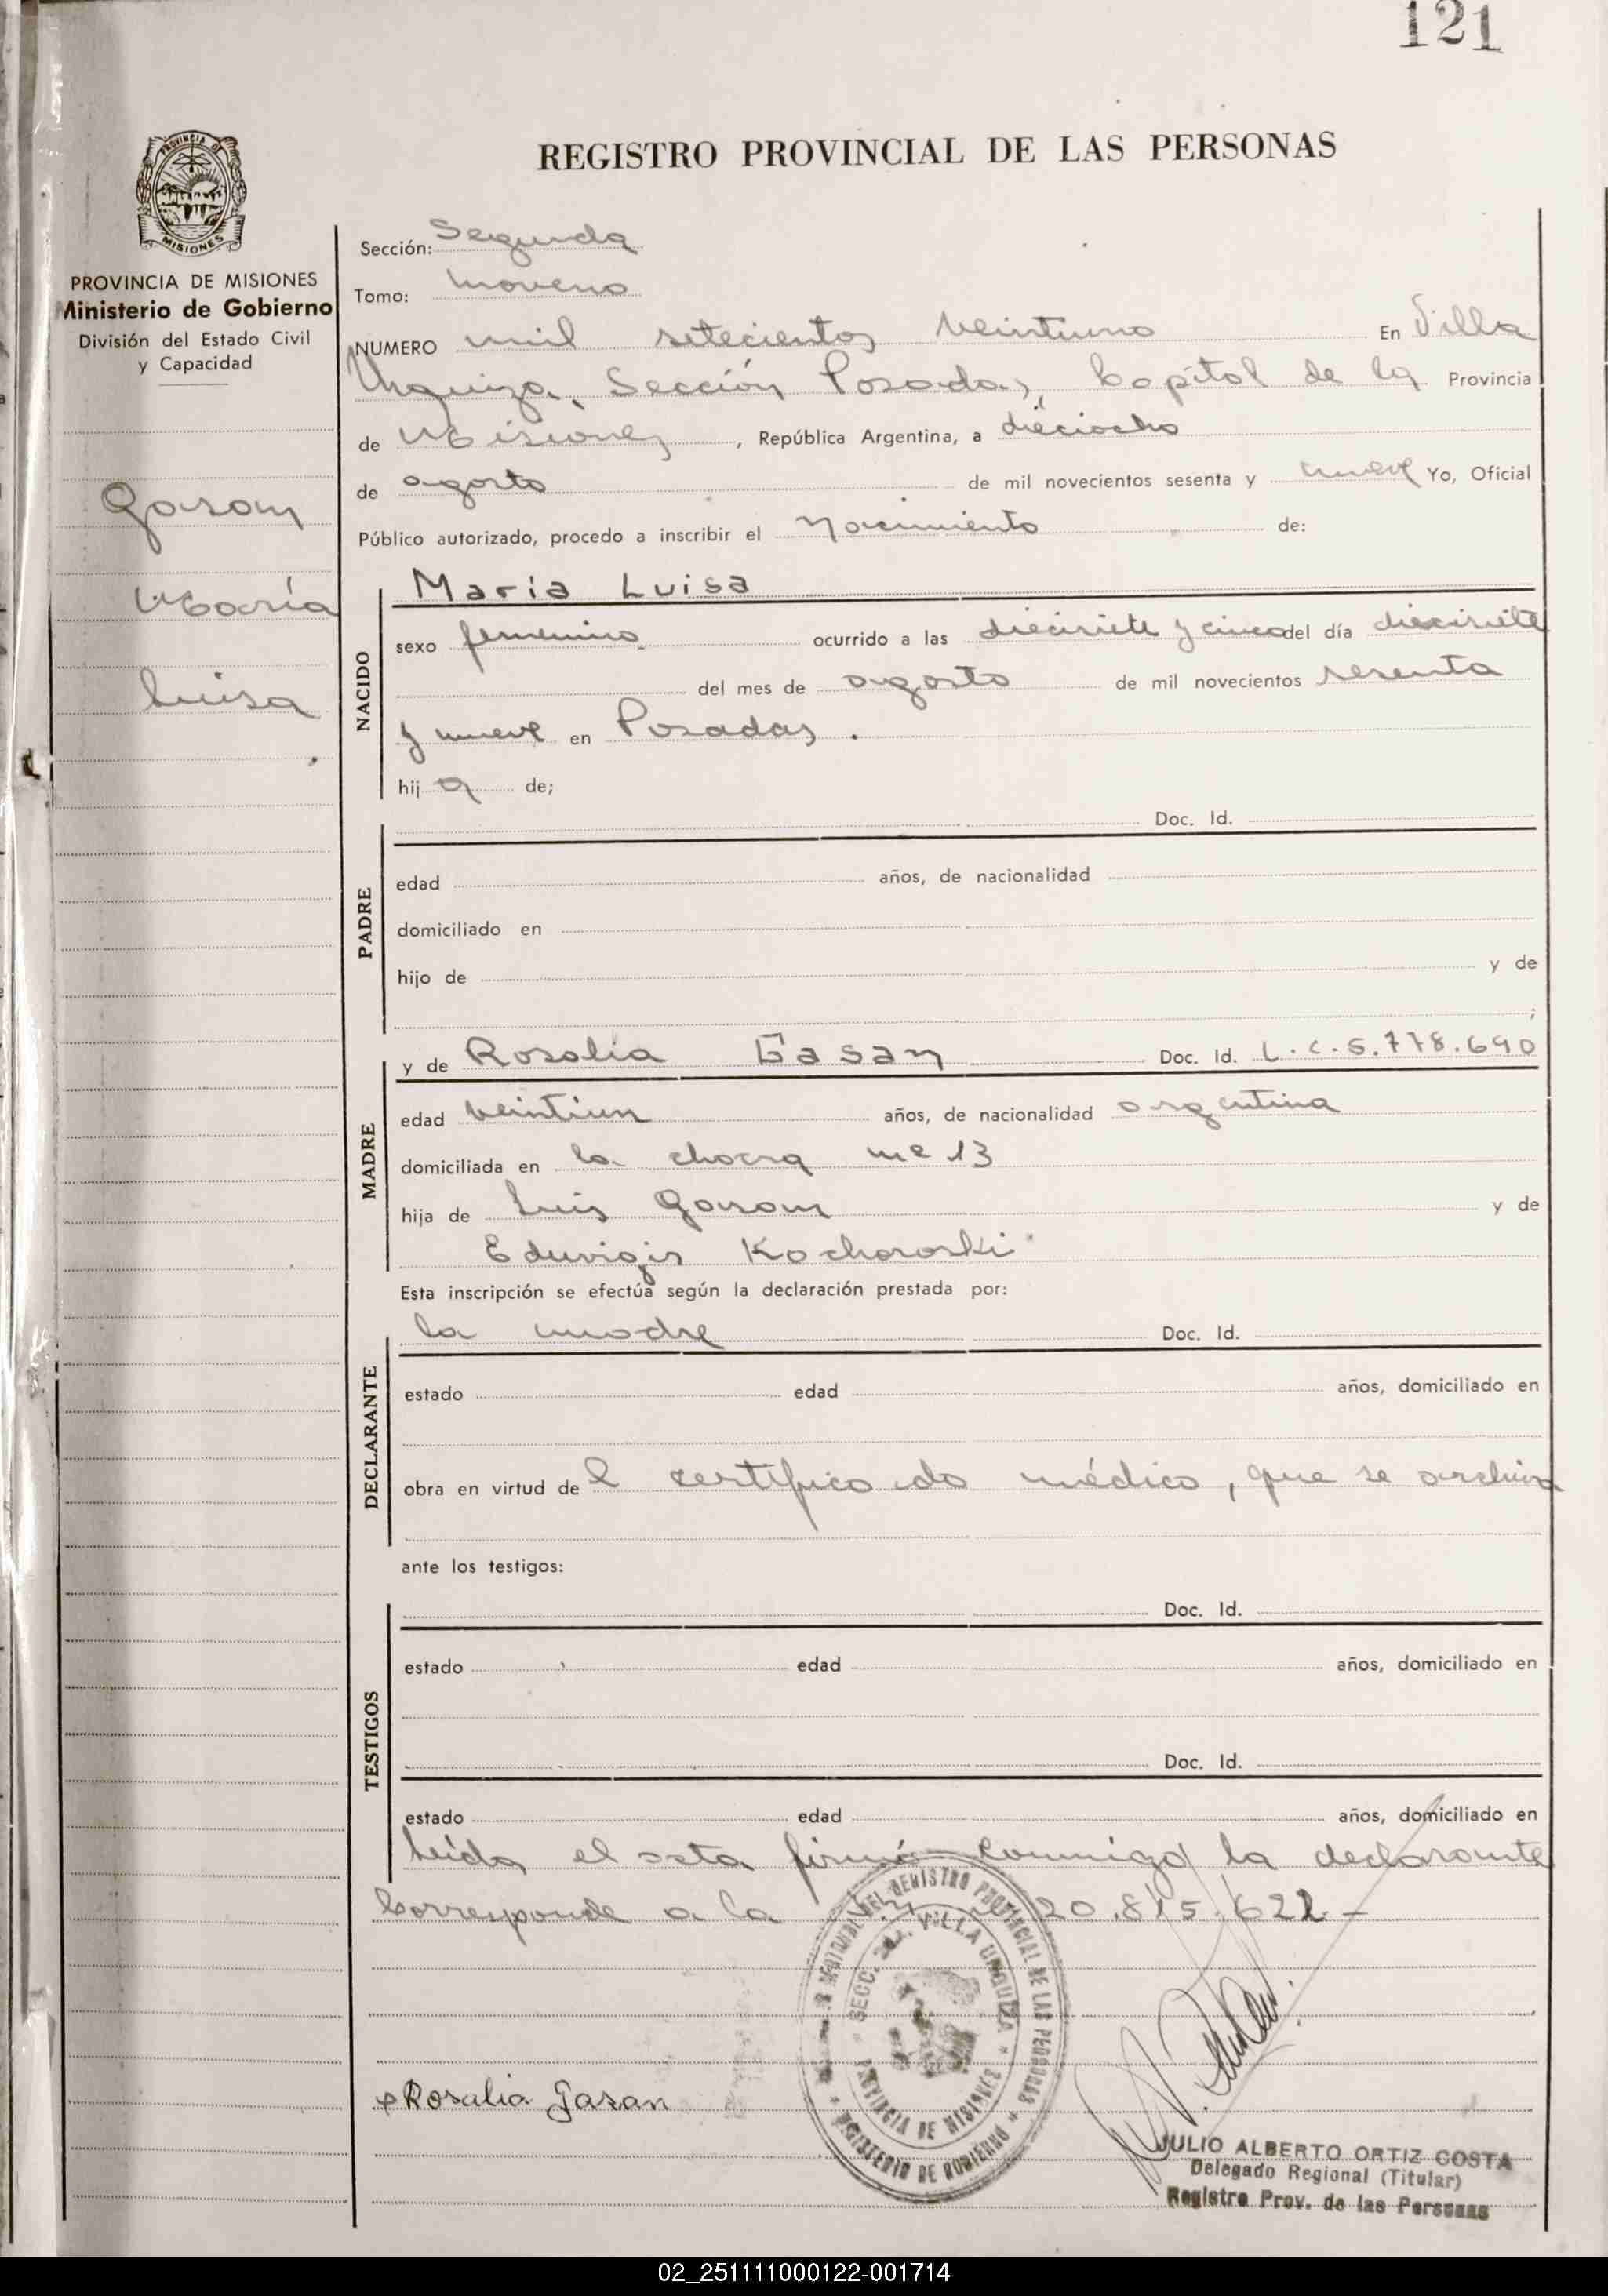 121
REGISTRO PROVINCIAL DE LAS PERSONAS
PROVINCIA DE
MISIONES
PROVINCIA DE MISIONES
Ministerio de Gobierno
División del Estado Civil
y Capacidad
Gasan
María
Luisa
Sección: Segunda
Tomo: noveno
NUMERO mil setecientos veintiuno En Villa
Urquiza, Sección Posadas, Capital de la Provincia
de Misiones, República Argentina, a dieciocho
de agosto de mil novecientos sesenta y nueve Yo, Oficial
Público autorizado, procedo a inscribir el Nacimiento de:
NACIDO
María Luisa
sexo femenino ocurrido a las diecisiete y cinco del día diecisiete
del mes de agosto de mil novecientos sesenta
y nueve en Posadas.
hija de;
PADRE
Doc. Id.
edad años, de nacionalidad
domiciliado en
hijo de y de
;
MADRE
y de Rosalia Gasan Doc. Id. L.C.5.778.690
edad veintiun años, de nacionalidad argentina
domiciliada en la chacra nº 13
hija de Luis Gasan y de
Eduvigis Kochoroski
Esta inscripción se efectúa según la declaración prestada por:
DECLARANTE
la madre Doc. Id.
estado edad años, domiciliado en
obra en virtud del certificado médico, que se archiva
ante los testigos:
TESTIGOS
Doc. Id.
estado edad años, domiciliado en
Doc. Id.
estado edad años, domiciliado en
Leída el acta firmó conmigo la declarante
Corresponde a la 20.815.622.-
DEL REGISTRO PROVINCIAL DE LAS PERSONAS
MINISTERIO DE GOBIERNO
SECC. 2da. VILLA URQUIZA
PROVINCIA DE MISIONES
Rosalia Gasan
JULIO ALBERTO ORTIZ COSTA
Delegado Regional (Titular)
Registro Prov. de las Personas
02_251111000122-001714